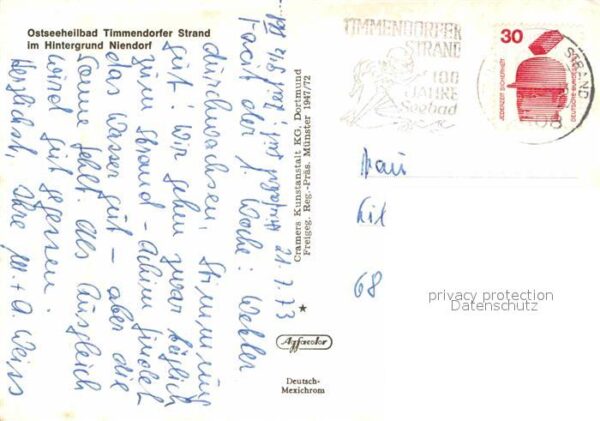 Ostseeheilbad Timmendorfer Strand
im Hintergrund Niendorf
21.7.73
Facit der 1. Woche: Wetter
durchwachsen, Stimmung
gut! Wir gehen zwar täglich
zum Strand - Achim findet
das Wasser gut - aber die
Sonne fehlt. Als Ausgleich
wird gut gegessen!
Herzlichst, Ihre M. + A Weiss
Cramers Kunstanstalt KG, Dortmund
Freigeg. Reg.-Präs. Münster 1947/72
Agfacolor
Deutsch-
Mexichrom
TIMMENDORFER
STRAND
100
JAHRE
Seebad
30
JEDERZEIT SICHERHEIT
DEUTSCHE BUNDESPOST
STRAND
Frau
68
privacy protection
Datenschutz